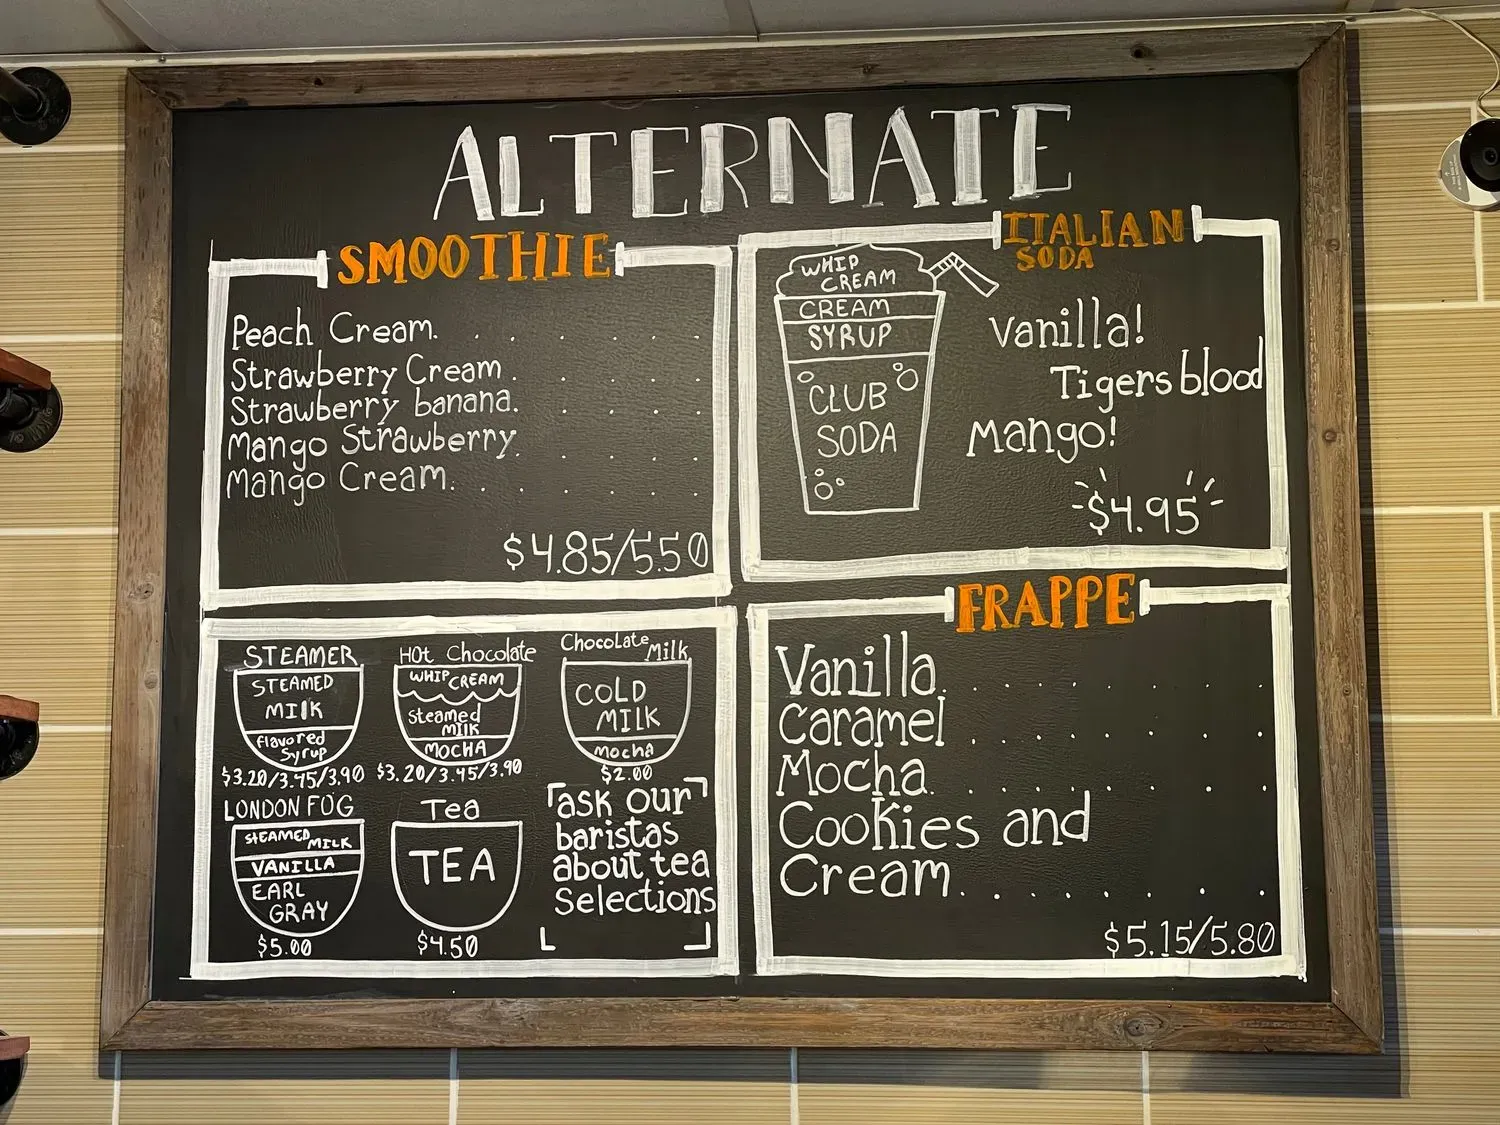 ALTERNATE
SMOOTHIE
Peach Cream. . . . . . .
Strawberry Cream . . . . .
Strawberry banana. . . . .
Mango Strawberry. . . . .
Mango Cream. . . . . . .
$4.85/5.50
ITALIAN
SODA
WHIP
CREAM
CREAM
SYRUP
CLUB
SODA
Vanilla!
Tigers blood
Mango!
$4.95
STEAMER
STEAMED
MILK
flavored
Syrup
$3.20/3.45/3.90
HOt Chocolate
WHIP CREAM
Steamed
MILK
MOCHA
$3.20/3.45/3.90
Chocolate Milk
COLD
MILK
mocha
$2.00
LONDON FOG
STEAMED MILK
VANILLA
EARL
GRAY
$5.00
Tea
TEA
$4.50
ask our
baristas
about tea
Selections
FRAPPE
Vanilla. . . . . . . .
Caramel . . . . . . .
Mocha. . . . . . . .
Cookies and
Cream. . . . . . . .
$5.15/5.80